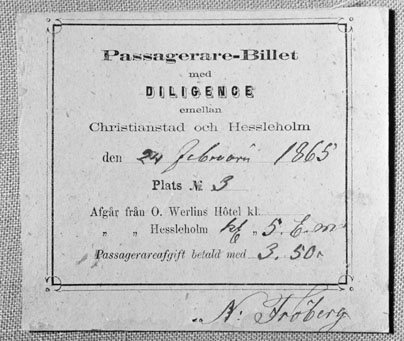 Passagerare-Billet
med
DILIGENCE
emellan
Christianstad och Hessleholm
den 24 februari 1865
Plats № 3
Afgår från O. Werlins Hôtel kl.
„ „ Hessleholm kl „ 5. E. m
Passagerareafgift betald med 3.50.
N: Fröberg